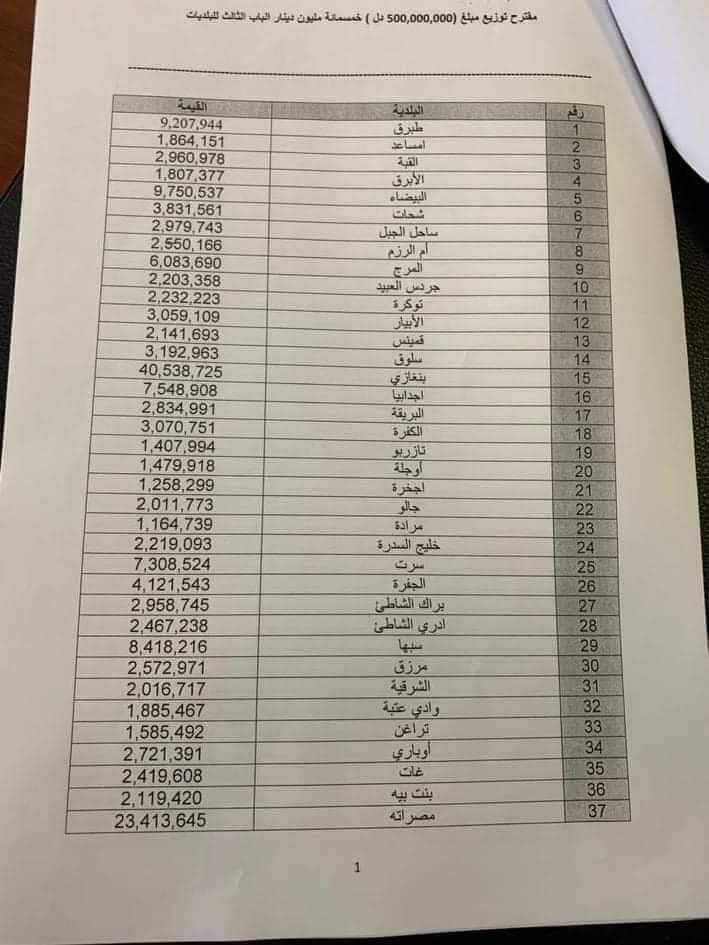 مقترح توزيع مبلغ (500,000,000 دل ) خمسمائة مليون دينار الباب الثالث للبلديات
رقم البلدية القيمة
1 طبرق 9,207,944
2 امساعد 1,864,151
3 القبة 2,960,978
4 الأبرق 1,807,377
5 البيضاء 9,750,537
6 شحات 3,831,561
7 ساحل الجبل 2,979,743
8 أم الرزم 2,550,166
9 المرج 6,083,690
10 جردس العبيد 2,203,358
11 توكرة 2,232,223
12 الأبيار 3,059,109
13 قمينس 2,141,693
14 سلوق 3,192,963
15 بنغازي 40,538,725
16 اجدابيا 7,548,908
17 البريقة 2,834,991
18 الكفرة 3,070,751
19 تازربو 1,407,994
20 أوجلة 1,479,918
21 اجخرة 1,258,299
22 جالو 2,011,773
23 مرادة 1,164,739
24 خليج السدرة 2,219,093
25 سرت 7,308,524
26 الجفرة 4,121,543
27 براك الشاطئ 2,958,745
28 ادري الشاطئ 2,467,238
29 سبها 8,418,216
30 مرزق 2,572,971
31 الشرقية 2,016,717
32 وادي عتبة 1,885,467
33 تراغن 1,585,492
34 أوباري 2,721,391
35 غات 2,419,608
36 بنت بيه 2,119,420
37 مصراته 23,413,645
1